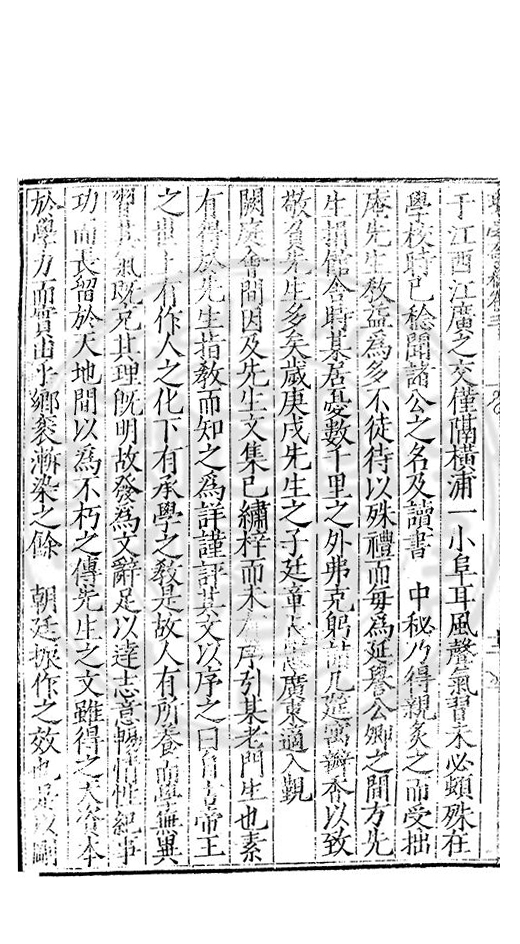 于江西江廣之交僅隔橫浦一小阜耳風聲氣習未必頓殊在
學校時已稔聞諸公之名及讀書　中秘乃得親炙之而受拙
庵先生教益為多不徒待以殊禮而每為延譽公卿之間方先
生捐館舍時某居憂數千里之外弗克躬詣几筵寓瓣香以致
敬負先生多矣歲庚戌先生之子廷章廣東適入覲
闕庭會間因及先生文集已繡梓而未序引某老門生也素
有得於先生指教而知之為詳謹評其文以序之曰自古帝王
之世上有作人之化下有承學之教是故人有所養而學無異
習其氣既充其理既明故發為文辭足以達志意暢情性紀事
功而長留於天地間以為不朽之傳先生之文雖得之天資本
於學力而實出乎鄉袠漸染之餘　朝廷振作之效也足以